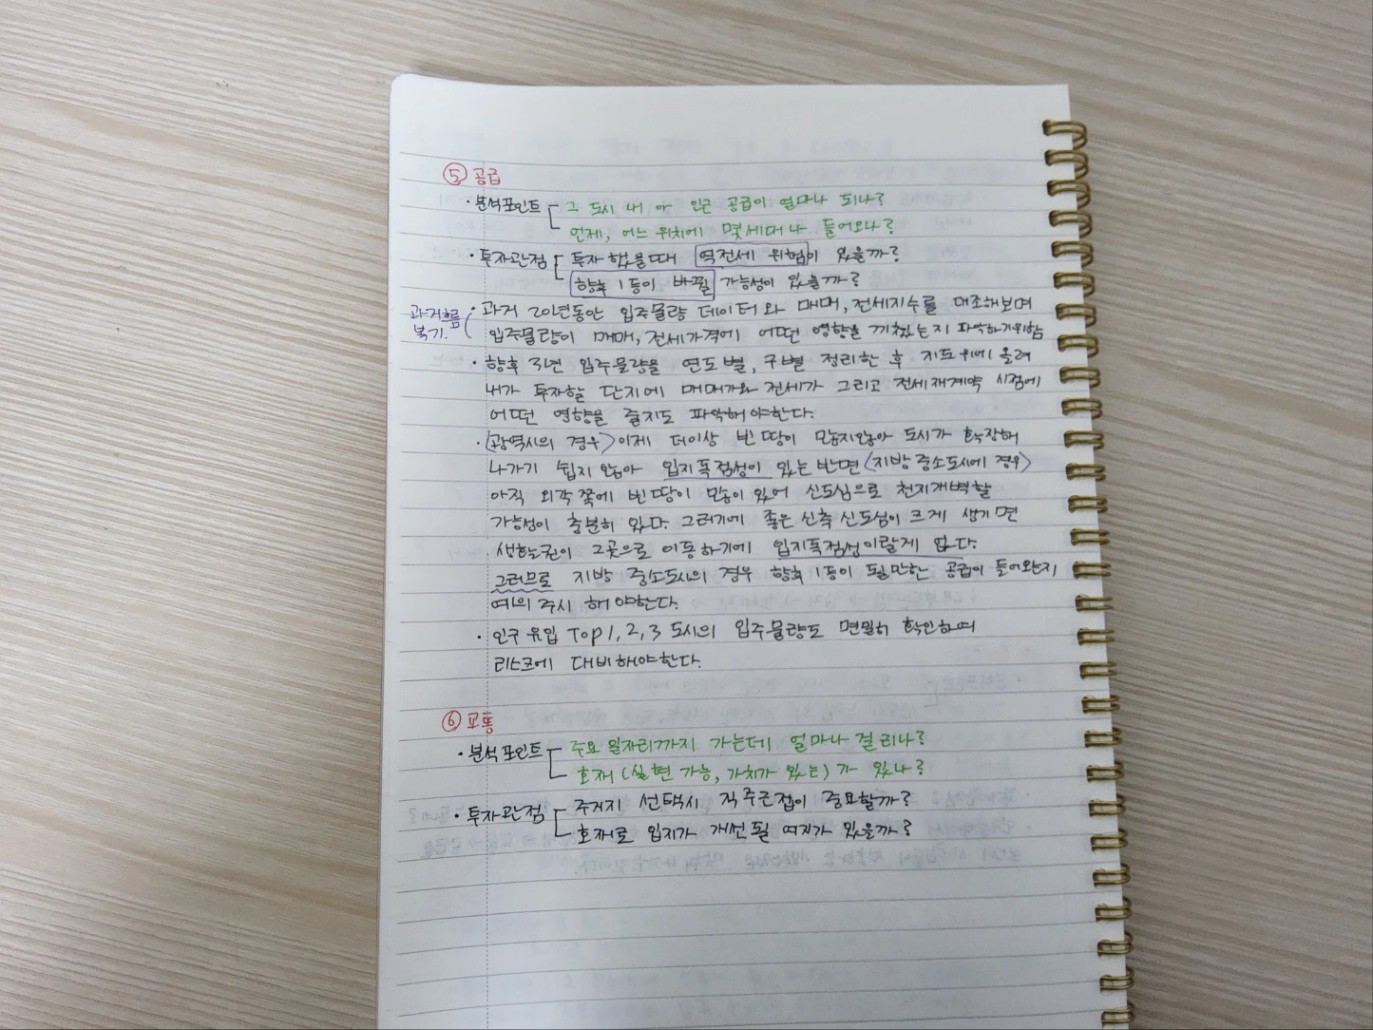 ⑤ 공급
· 분석포인트 그 도시 내 와 인근 공급이 얼마나 되나?
언제, 어느 위치에 몇세대나 들어오나?
· 투자관점 투자 했을때 역전세 위험이 있을까?
향후 1등이 바뀔 가능성이 있을까?
과거흐름 복기. · 과거 20년동안 입주물량 데이터와 매매, 전세지수를 대조해보며
입주물량이 매매, 전세가격에 어떤 영향을 끼쳤는지 파악하기위함
· 향후 3년 입주물량을 연도별, 구별 정리한 후 지도위에 올려
내가 투자할 단지에 매매가와 전세가 그리고 전세재계약 시점에
어떤 영향을 줄지도 파악해야한다.
· <광역시의 경우> 이제 더이상 빈 땅이 많지않아 도시가 확장해
나가기 쉽지 않아 입지독점성이 있는 반면 <지방 중소도시에 경우>
아직 외각쪽에 빈 땅이 많이 있어 신도심으로 천지개벽할
가능성이 충분히 있다. 그러기에 좋은 신축 신도심이 크게 생기면
생활권이 그곳으로 이동하기에 입지독점성이랄게 없다.
그러므로 지방 중소도시의 경우 향후 1등이 될만한 공급이 들어오는지
예의주시 해야한다.
· 인구 유입 Top 1, 2, 3 도시의 입주물량도 면밀히 확인하며
리스크에 대비해야한다.
⑥ 교통
· 분석포인트 주요 일자리까지 가는데 얼마나 걸리나?
호재 (실현 가능, 가치가 있는) 가 있나?
· 투자관점 주거지 선택시 직주근접이 중요할까?
호재로 입지가 개선될 여지가 있을까?